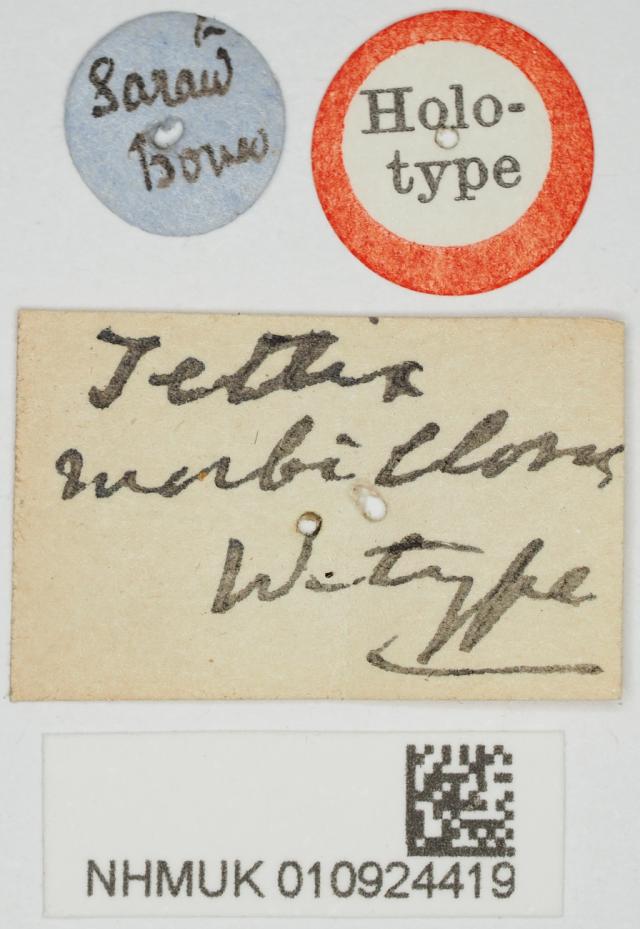 Saraw̃
Borneo
Holo-
type
Tettix
morbillosus
W. type
NHMUK 010924419